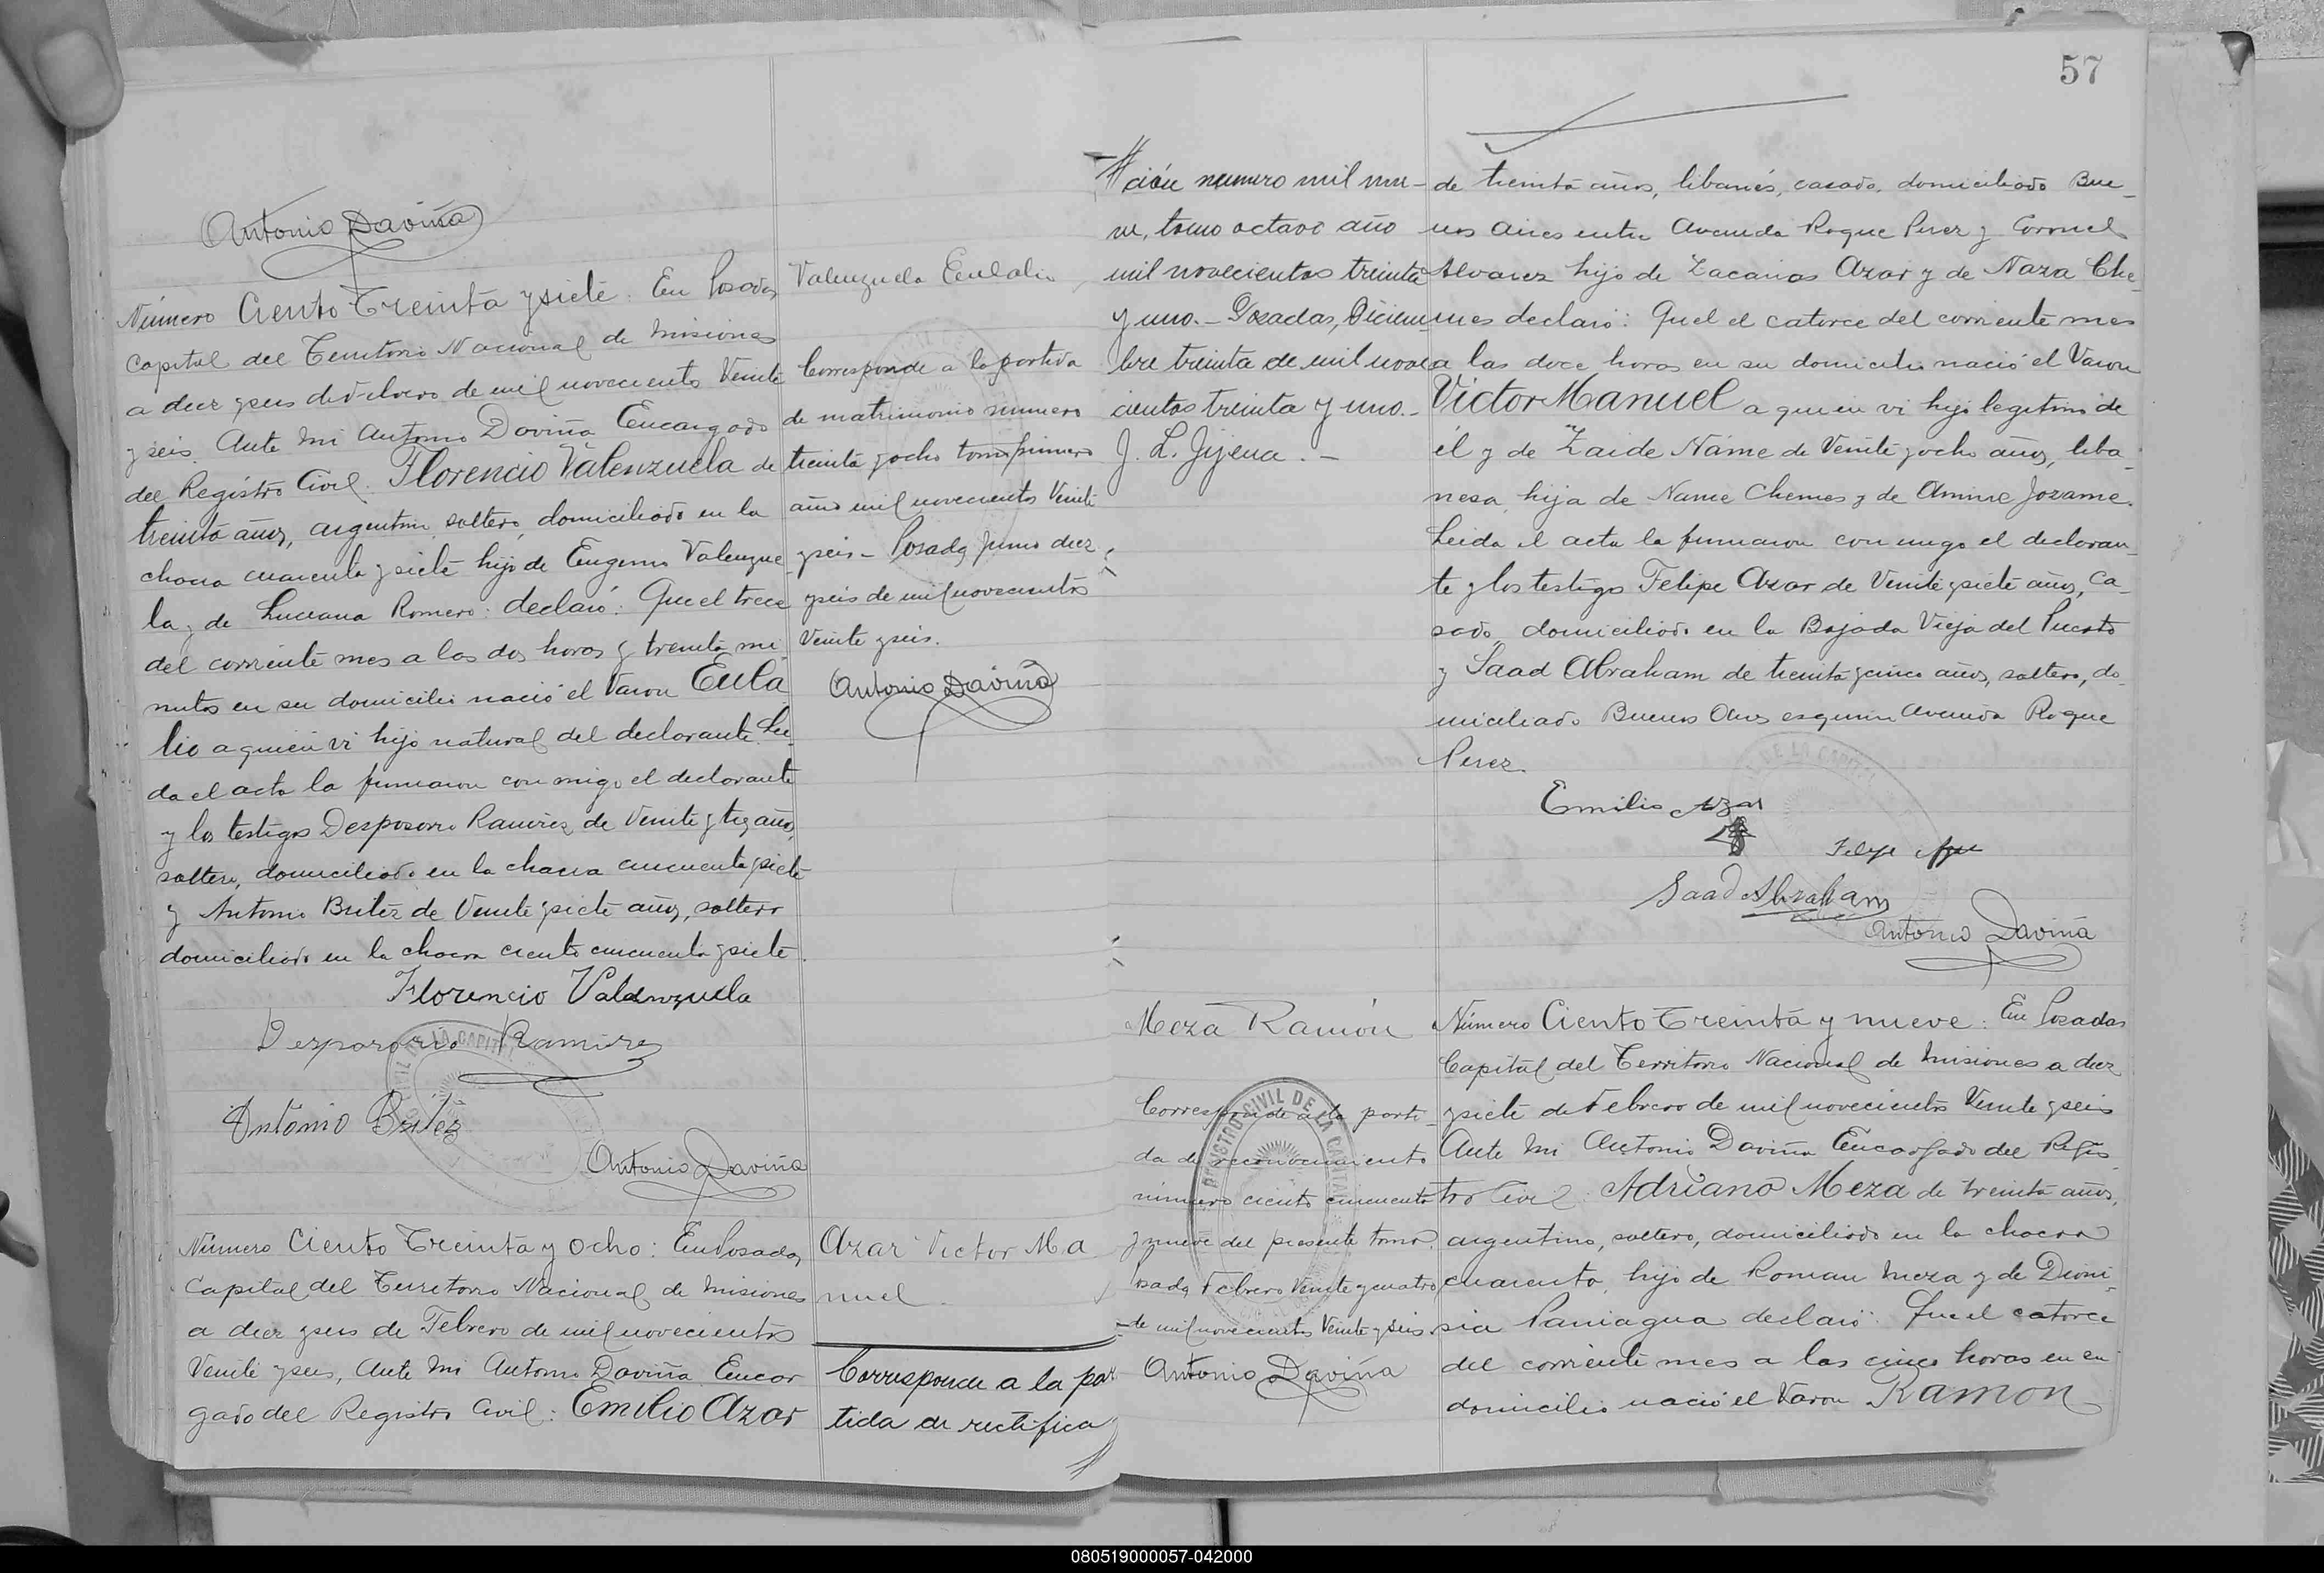 Antonio Daviña
Número Ciento Treinta y siete. En Posadas
Capital del Territorio Nacional de Misiones
a diez y seis de Febrero de mil novecientos Veinte
y seis. Ante mi Antonio Daviña Encargado
del Registro Civil. Florencio Valenzuela de
treinta años, argentino, soltero, domiciliado en la
chacra cuarenta y siete hijo de Eugenio Valenzue
la y de Luciana Romero: declaró: Que el trece
del corriente mes a las dos horas y treinta mi
nutos en su domicilio nació el Varon Eula
lio a quien vi hijo natural del declarante. Lei
da el acta la firmaron conmigo el declarante
y los testigos Desposorio Ramirez de Veinte y tres años,
soltero, domiciliado en la chacra cincuenta y siete
y Antonio Britez de Veinte y siete años, soltero
domiciliado en la chacra ciento cincuenta y siete.
Florencio Valenzuela
Desposorio Ramirez
Antonio Britez
Antonio Daviña
Valenzuela Eulalio
Corresponde a la partida
de matrimonio numero
treinta y ocho tomo primero
año mil novecientos Veinte
y seis - Posadas, Junio diez
y seis de mil novecientos
Veinte y seis.
Antonio Daviña
Número Ciento Treinta y ocho: En Posadas,
Capital del Territorio Nacional de Misiones
a diez y seis de Febrero de mil novecientos
Veinte y seis, Ante mi Antonio Daviña Encar
gado del Registro Civil: Emilio Azar
Azar Victor Ma
nuel
Corresponde a la par
tida de rectifica
57
ción numero mil nue-
ve, tomo octavo año
mil novecientos treinta
y uno. - Posadas, Diciem-
bre treinta de mil nove
cientos treinta y uno. -
J. L. Jijena. -
de treinta años, libanés, casado, domiciliado Bue-
nos Aires entre Avenida Roque Perez y Coronel
Alvarez hijo de Zacarias Azar y de Naza Che-
mes declaró: Quel el catorce del corriente mes
a las doce horas en su domicilio nació el Varon
Victor Manuel a quien vi hijo legitimo de
él y de Zaide Name de Veinte y ocho años, liba-
nesa, hija de Name Chemes y de Amine Jozame.
Leida el acta la firmaron conmigo el declaran-
te y los testigos Felipe Azar de Veinte y siete años, ca-
sado, domiciliado en la Bajada Vieja del Puerto
y Saad Abraham de treinta y cinco años, soltero, do-
miciliado Buenos Aires esquina Avenida Roque
Perez
Emilio Azar
Felipe
Saad Abraham
Antonio Daviña
Meza Ramón
Corresponde a la parti-
da de reconocimiento
número ciento cincuenta
y nueve del presente tomo.
Posadas, Febrero Veinte y cuatro
de mil novecientos Veinte y seis.
Antonio Daviña
REGISTRO CIVIL DE LA CAPITAL
Número Ciento Treinta y nueve: En Posadas
Capital del Territorio Nacional de Misiones a diez
y siete de Febrero de mil novecientos Veinte y seis
Ante mi Antonio Daviña Encargado del Regis
tro Civil: Adriano Meza de treinta años,
argentino, soltero, domiciliado en la chacra
cuarenta, hijo de Roman Meza y de Dioni-
sia Paniagua declaró: Que el catorce
del corriente mes a las cinco horas en su
domicilio nació el Varon Ramon
080519000057-042000